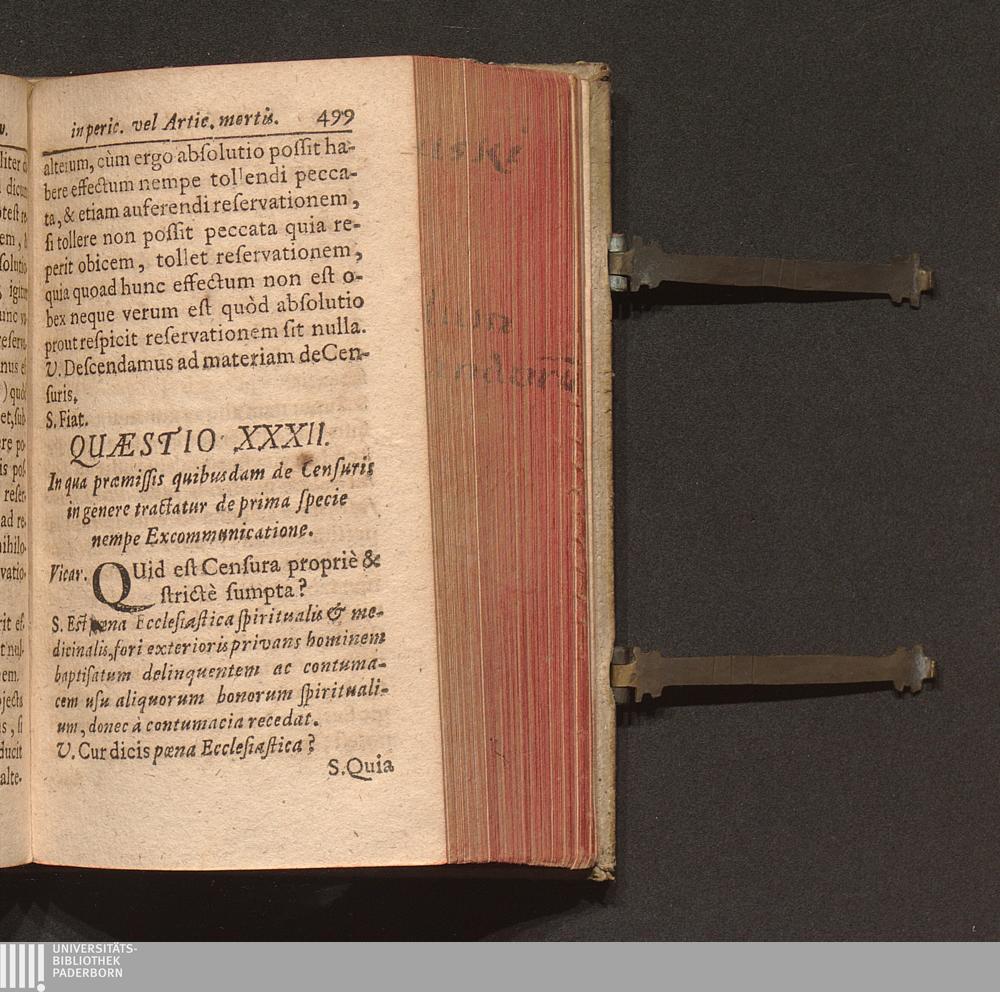 in peric. vel Artic. mortis. 499
alterum, cùm ergo abſolutio poſſit ha-
bere effectum nempe tollendi pecca-
ta, & etiam auferendi reſervationem,
ſi tollere non poſſit peccata quia re-
perit obicem, tollet reſervationem,
quia quoad hunc effectum non eſt o-
bex neque verum eſt quòd abſolutio
prout reſpicit reſervationem ſit nulla.
V. Deſcendamus ad materiam de Cen-
ſuris.
S. Fiat.
QUÆSTIO XXXII.
In qua præmiſſis quibusdam de Cenſuris
in genere tractatur de prima ſpecie
nempe Excommunicatione.
Vicar. QUid eſt Cenſura propriè &
ſtrictè ſumpta?
S. Eſt pœna Eccleſiaſtica ſpiritualis & me-
dicinalis, fori exterioris privans hominem
baptiſatum delinquentem ac contuma-
cem uſu aliquorum bonorum ſpirituali-
um, donec à contumacia recedat.
V. Cur dicis pœna Eccleſiaſtica?
S. Quia
UNIVERSITÄTS-
BIBLIOTHEK
PADERBORN